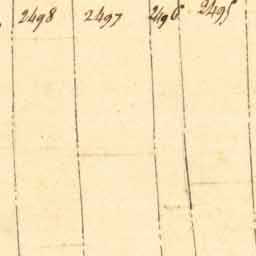 2498 2497 2496 2495